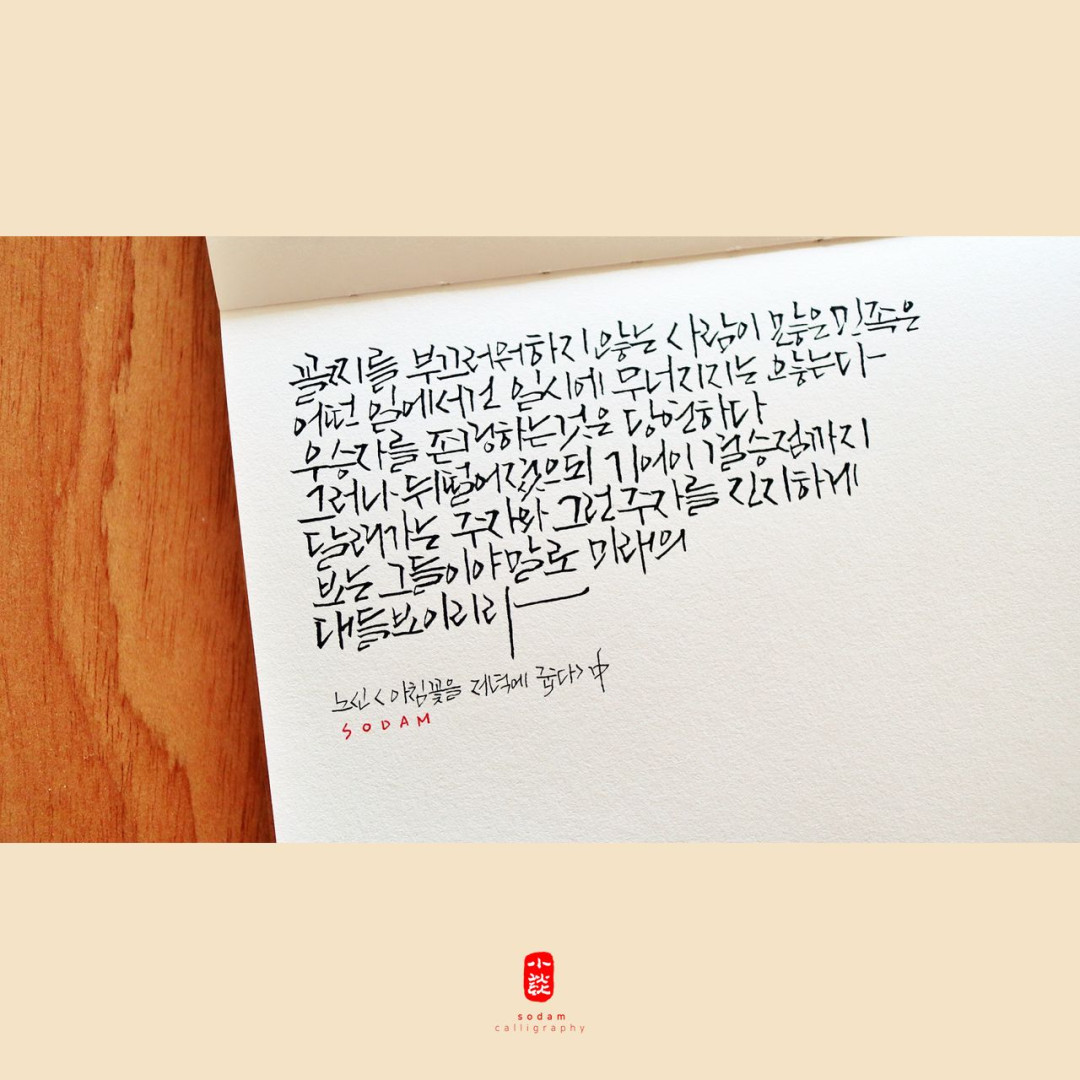 꼴찌를 부끄러워하지 않는 사람이 많은 민족은
어떤 일에서건 일시에 무너지지는 않는다
우승자를 존경하는것은 당연하다
그러나 뒤떨어졌으되 기어이 결승점까지
달려가는 주자와 그런 주자를 진지하게
보는 그들이야말로 미래의
대들보이리라
노신 <아침꽃을 저녁에 줍다> 中
SODAM
小談
sodam
calligraphy